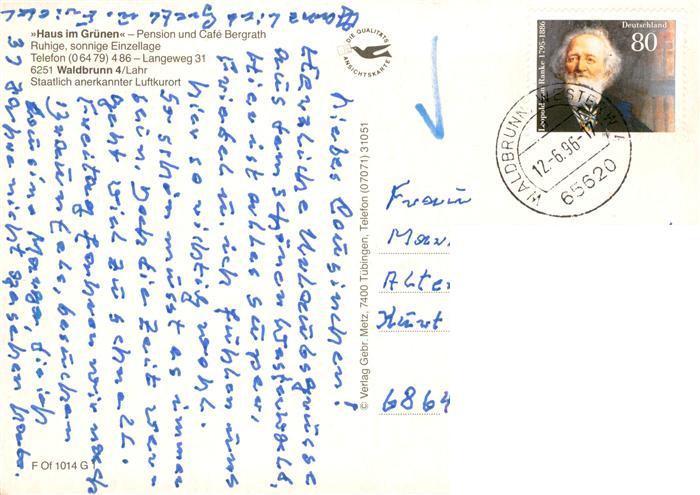 »Haus im Grünen« – Pension und Café Bergrath
Ruhige, sonnige Einzellage
Telefon (0 64 79) 4 86 – Langeweg 31
6251 Waldbrunn 4/Lahr
Staatlich anerkannter Luftkurort
DIE QUALITÄTS
ANSICHTSKARTE
Deutschland
80
Leopold von Ranke 1795-1886
WALDBRUNN, WESTERW 1
12.-6.96-1
65620
Liebes Cousinchen!
Herzliche Urlaubsgrüsse
aus dem schönen Westerwald,
Hier ist alles super,
Friedel u. ich fühlen uns
hier so richtig wohl.
So schön müsst es immer
sein, doch die Zeit ver-
geht viel zu schnell.
Freitag fahren wir nach
Braunfels, besuchen
Cousine Marga, die ich
37 Jahre nicht gesehen habe.
Ganz lieb Grüßt u.
© Verlag Gebr. Metz, 7400 Tübingen, Telefon (07071) 31051
Frau
Mar
Alte
Kurt
6864
F Of 1014 G 1